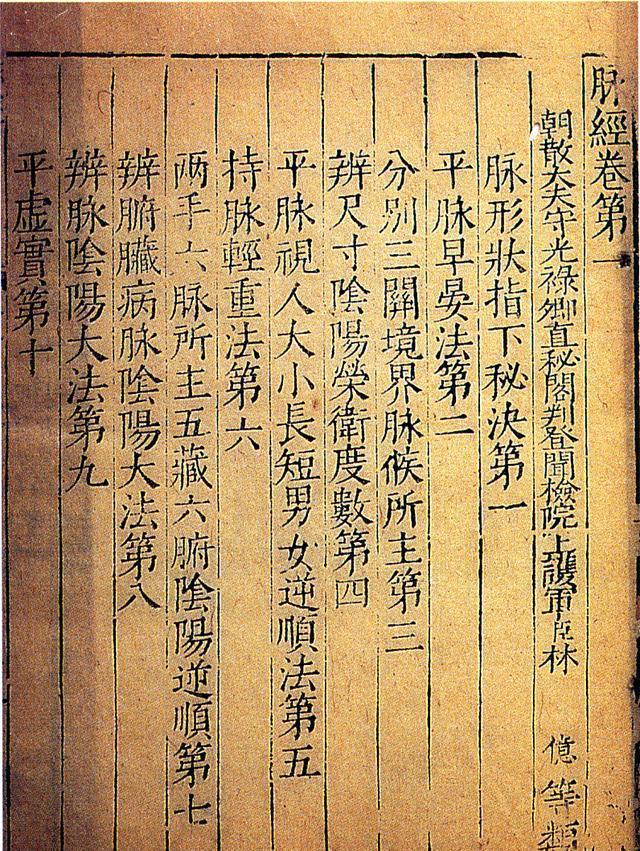 脉經卷第一
朝散大夫守光祿卿直秘閣判登聞檢院上護軍臣林億等類
脉形狀指下秘决第一
平脉早晏法第二
分别三關境界脉候所主第三
辨尺寸陰陽榮衛度數第四
平脉視人大小長短男女逆順法第五
持脉輕重法第六
两手六脉所主五藏六腑陰陽逆順第七
辨腑臟病脉陰陽大法第八
辨脉陰陽大法第九
平虚實第十